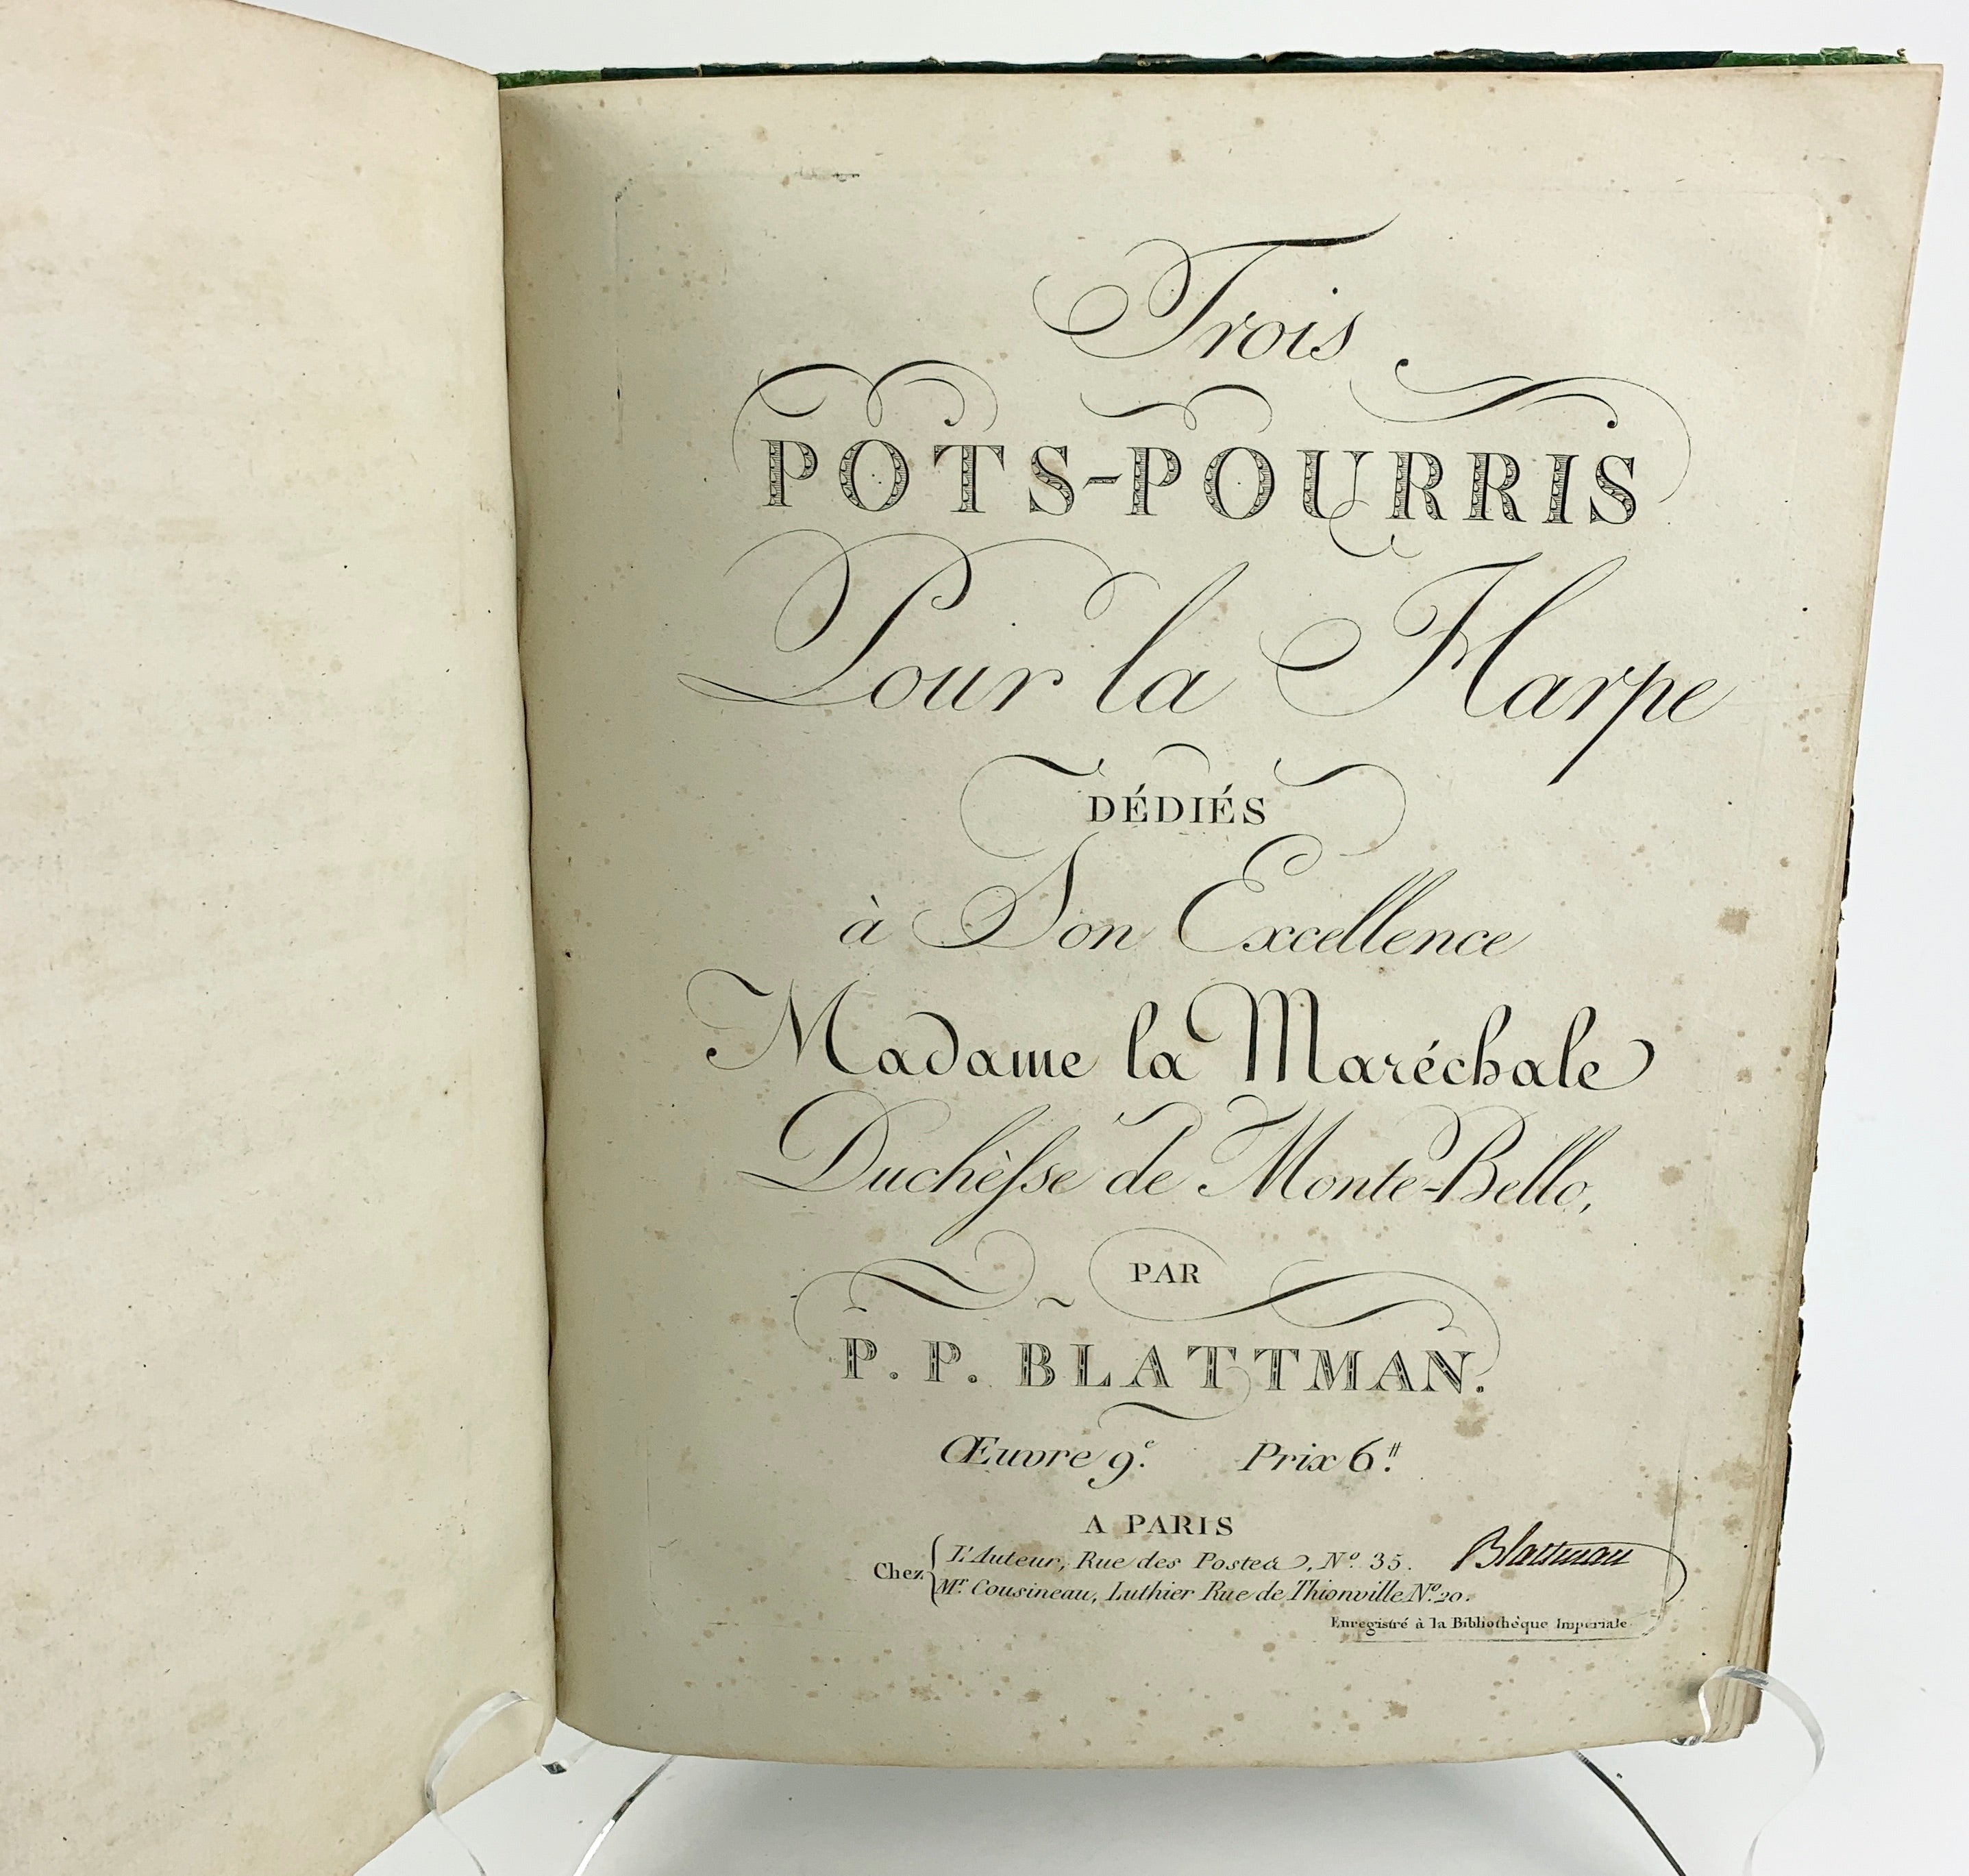 Trois
POTS-POURRIS
Pour la Harpe
DÉDIÉS
à Son Excellence
Madame la Maréchale
Duchèſse de Monte-Bello,
PAR
P. P. BLATTMAN.
Œuvre 9.e Prix 6.#
A PARIS
Chez { L'Auteur, Rue des Postes, No. 35. Blattman
Mr. Cousineau, Luthier Rue de Thionville No. 20.
Enregistré à la Bibliothèque Impériale.